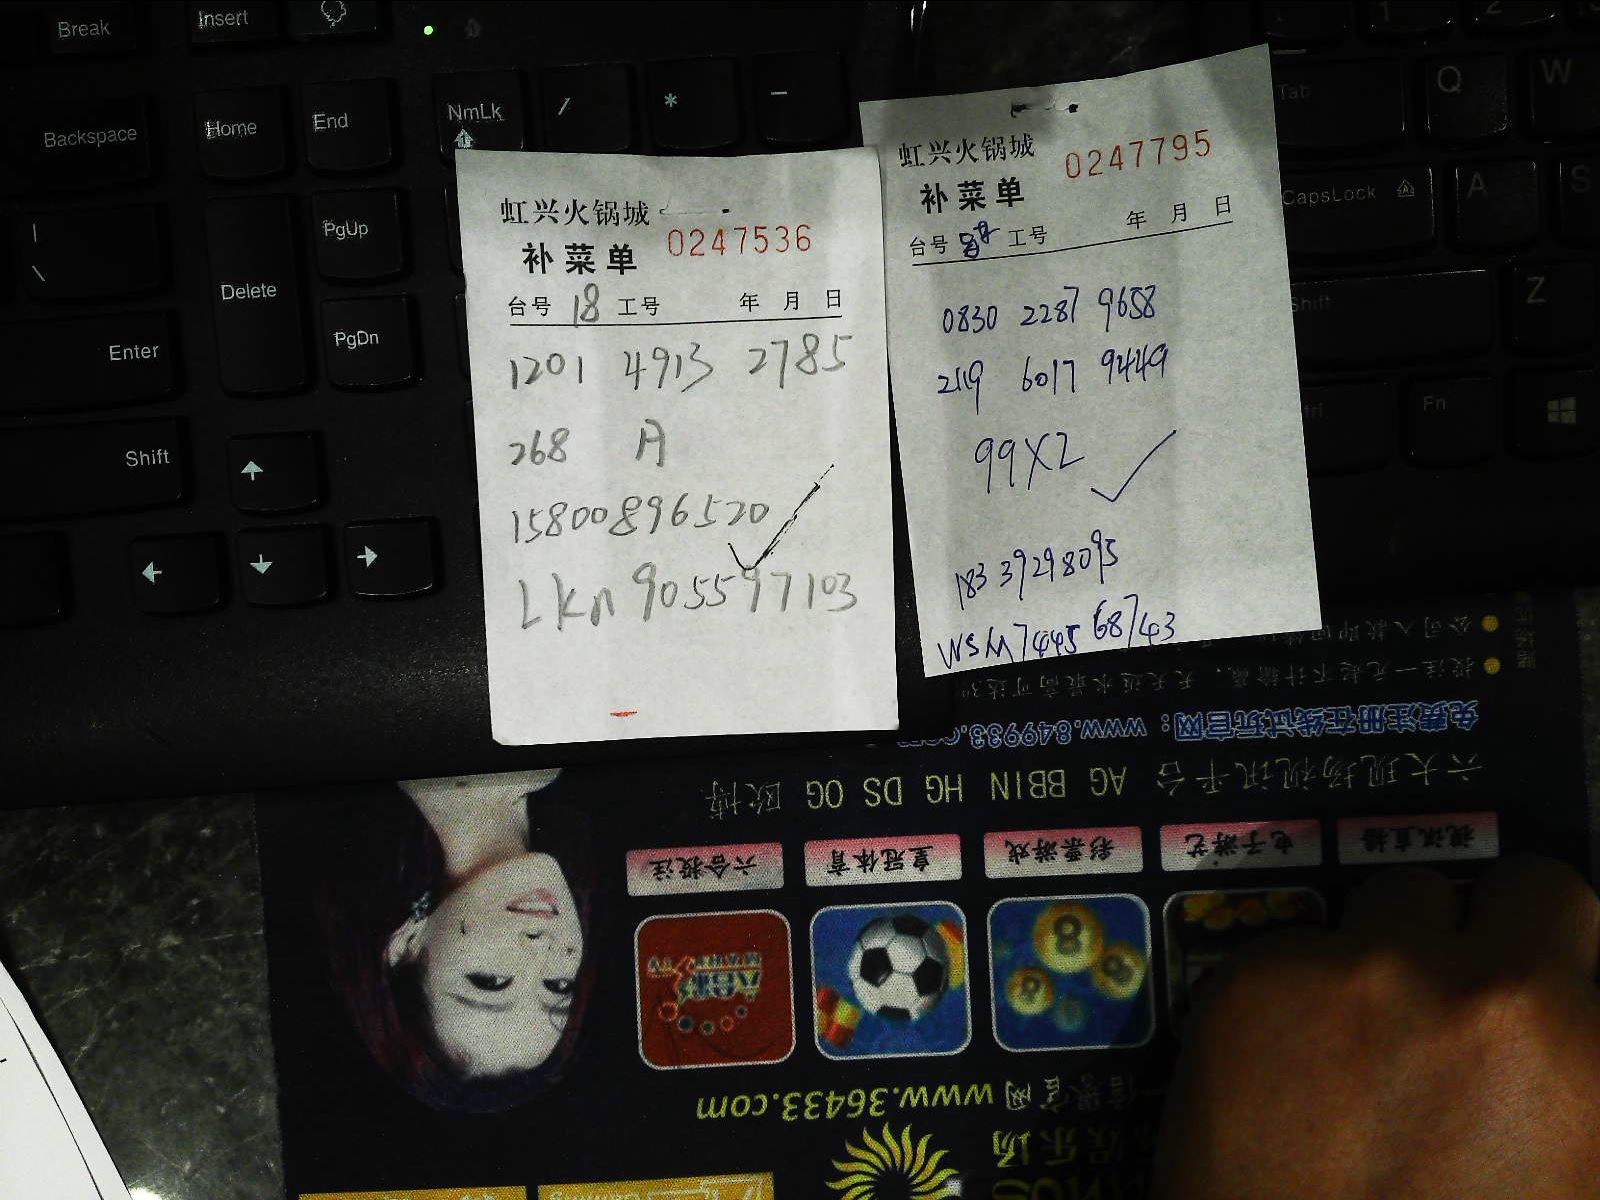 Break
Insert
Backspace
Home
End
NmLk
/
*
-
Tab
Q
W
1
2
|
\
Delete
PgUp
PgDn
CapsLock
A
S
Enter
Shift
Shift
Z
Fn
虹兴火锅城
补菜单
0247536
台号 18 工号 年 月 日
1201 4913 2785
268 A
15800896520
Lkn 905597103
虹兴火锅城
补菜单
0247795
台号 工号 年 月 日
0830 2287 9658
2119 6017 9449
99X2
183 39298095
WSM7445 68743
免费注册在线试玩官网：www.849933.com
六大现场视讯平台 AG BBIN HG DS OG 欧博
视讯直播
电子游艺
彩票游戏
皇冠体育
六合投注
8
www.36433.com